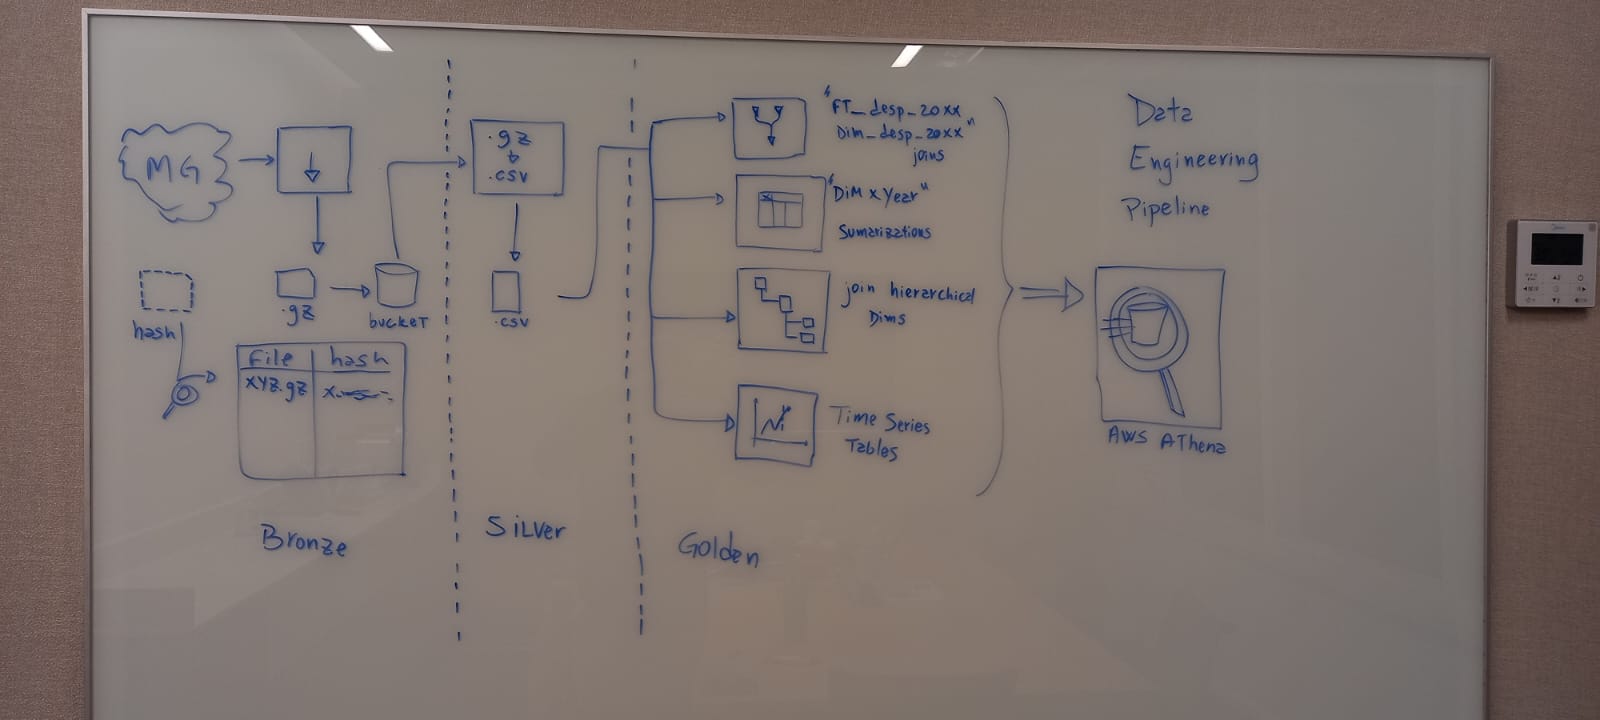 MG
hash
.gz
bucket
File hash
xyz.gz
Bronze
.gz
.csv
.csv
Silver
"FT_desp_20xx
Dim_desp_20xx"
joins
"DiM x Year"
Sumarizations
join hierarchical
Dims
Time Series
Tables
Golden
Data
Engineering
Pipeline
AWS AThena